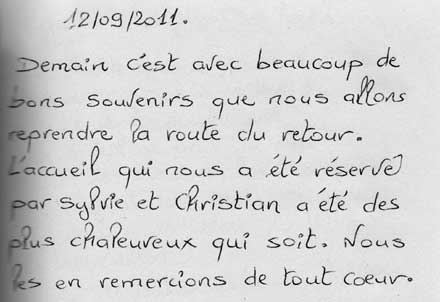 12/09/2011.
Demain c'est avec beaucoup de
bons souvenirs que nous allons
reprendre la route du retour.
L'accueil qui nous a été réservé
par Sylvie et Christian a été des
plus chaleureux qui soit. Nous
les en remercions de tout coeur.